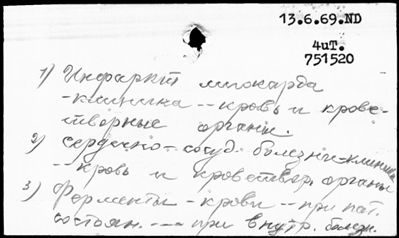 13.6.69.ND
4uT.
751520
1) Инфаркт миокарда
-клиника -- кровь и крове-
творные органы.
2) Сердечно-сосуд. болезни-клиника
-- кровь и кроветвор. органы
3) Ферменты - крови -- при пат.
состоян. --- при внутр. болезн.